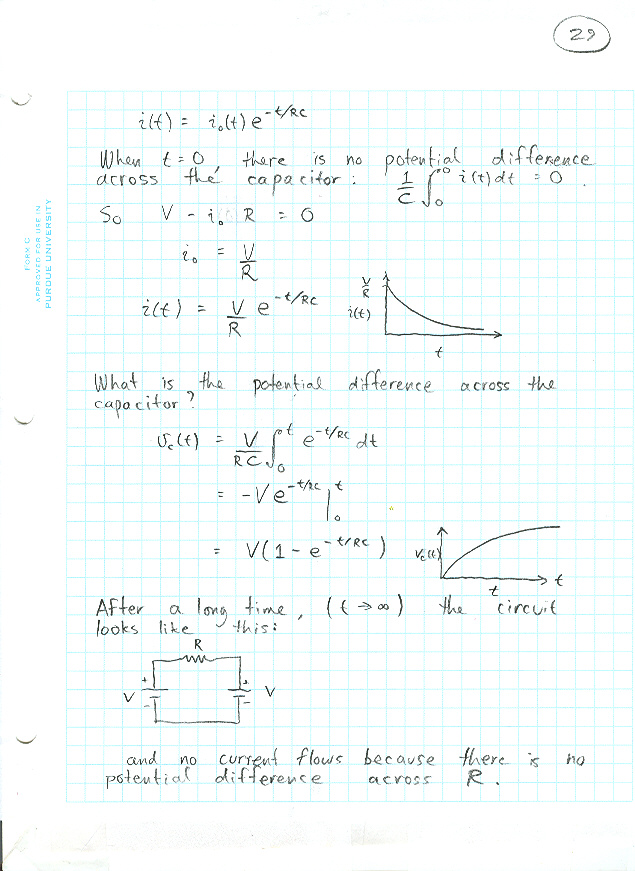 29
i(t) = i₀(t) e^{-t/RC}
When t = 0, there is no potential difference
across the capacitor: 1/C ∫₀⁰ i(t) dt = 0.
So V - i₀ R = 0
i₀ = V/R
i(t) = V/R e^{-t/RC}
V/R
i(t)
t
What is the potential difference across the
capacitor?
v_c(t) = V/RC ∫₀^t e^{-t/RC} dt
= -V e^{-t/RC} |₀^t
= V(1 - e^{-t/RC})
v_c(t)
t
t
After a long time, (t → ∞) the circuit
looks like this:
R
V + - + - V
and no current flows because there is no
potential difference across R.
FORM C
APPROVED FOR USE IN
PURDUE UNIVERSITY